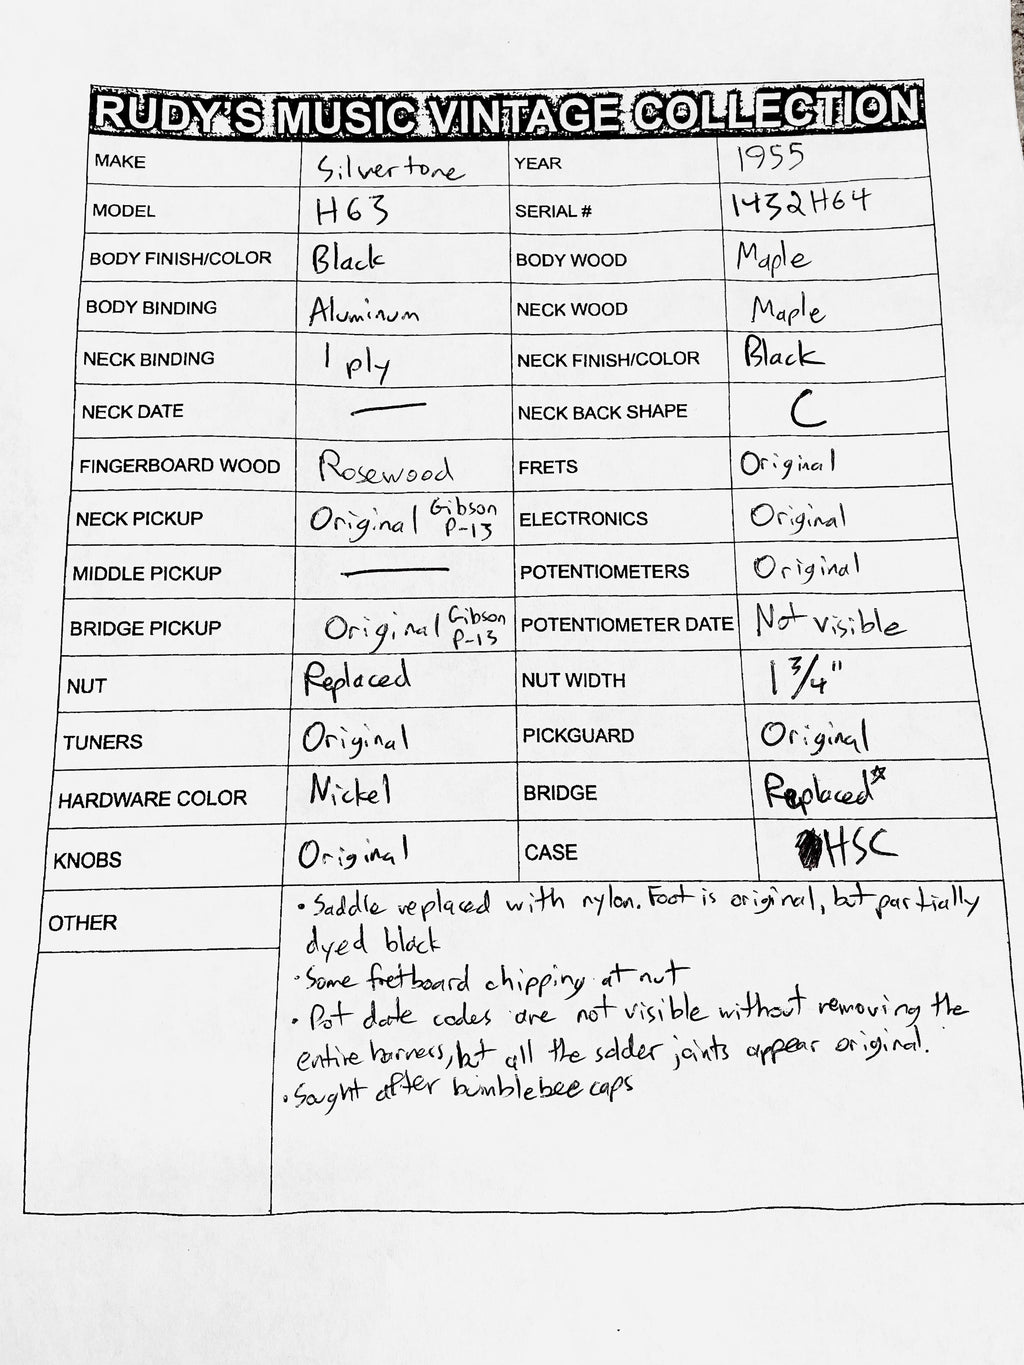 RUDY'S MUSIC VINTAGE COLLECTION
MAKE Silvertone YEAR 1955
MODEL H63 SERIAL # 1432H64
BODY FINISH/COLOR Black BODY WOOD Maple
BODY BINDING Aluminum NECK WOOD Maple
NECK BINDING 1 ply NECK FINISH/COLOR Black
NECK DATE — NECK BACK SHAPE C
FINGERBOARD WOOD Rosewood FRETS Original
NECK PICKUP Original Gibson P-13 ELECTRONICS Original
MIDDLE PICKUP — POTENTIOMETERS Original
BRIDGE PICKUP Original Gibson P-13 POTENTIOMETER DATE Not visible
NUT Replaced NUT WIDTH 1 3/4"
TUNERS Original PICKGUARD Original
HARDWARE COLOR Nickel BRIDGE Replaced☆
KNOBS Original CASE HSC
OTHER • Saddle replaced with nylon. Foot is original, but partially
dyed black
• Some fretboard chipping at nut
• Pot date codes are not visible without removing the
entire harness, but all the solder joints appear original.
• Sought after bumblebee caps